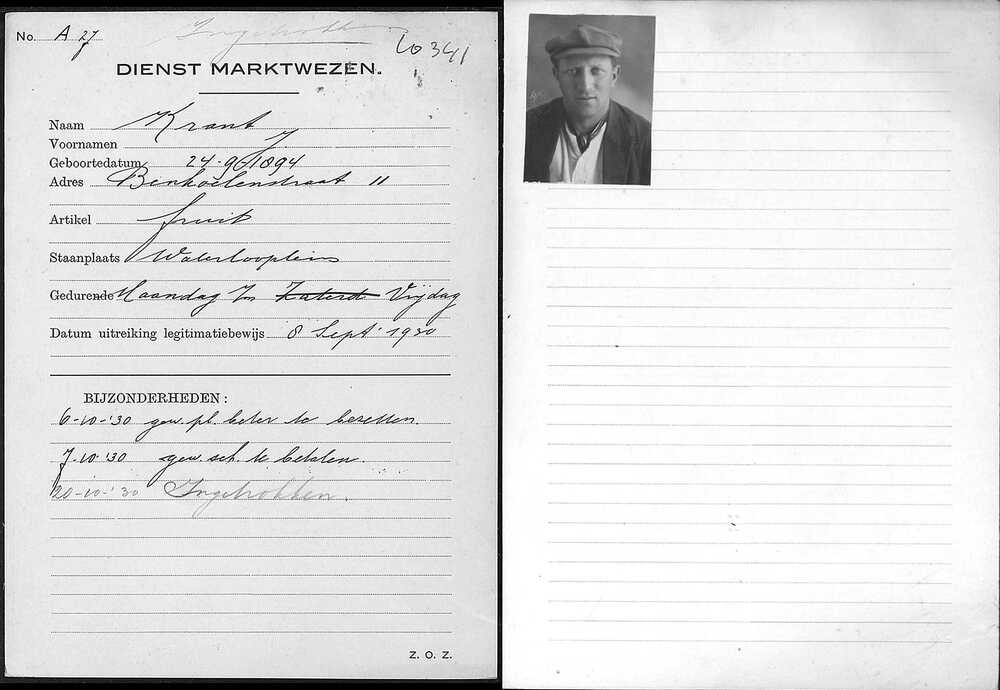 No. A 27
Ingetrokken
60341
DIENST MARKTWEZEN.
Naam Krant
Voornamen J.
Geboortedatum 24-9-1894
Adres Benkoelenstraat 11
Artikel fruit
Staanplaats Waterlooplein
Gedurende Maandag t/m Zaterd Vrijdag
Datum uitreiking legitimatiebewijs 8 Sept 1930
BIJZONDERHEDEN:
6-10-'30 gew. pl. beter te bezetten.
7-10-'30 gew. sch. te betalen.
20-10-'30 Ingetrokken.
Z. O. Z.